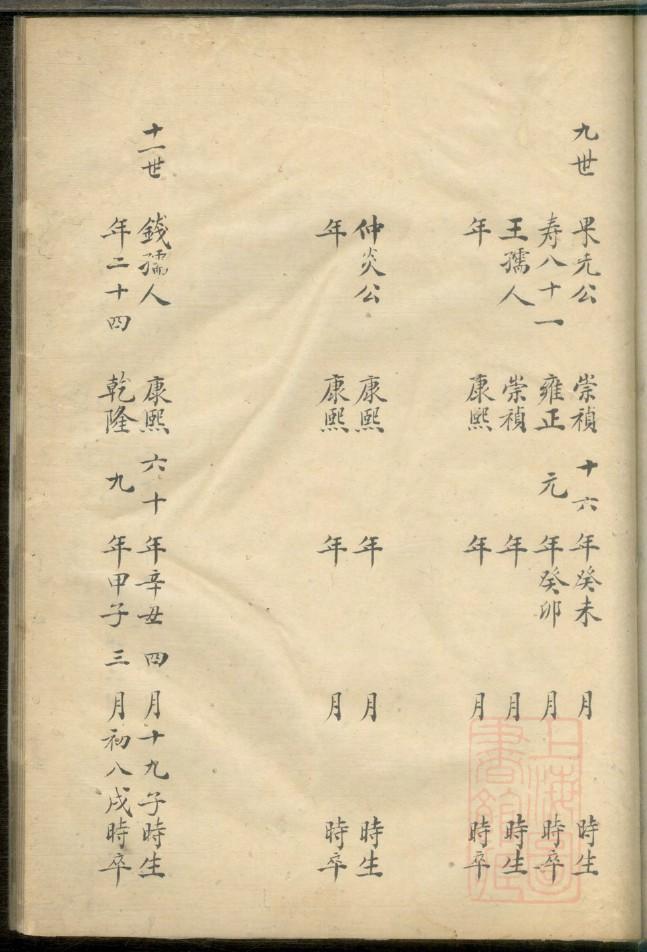 九世 果先公 崇禎十六年癸未 月 時生
寿八十一 雍正元年癸卯 月 時卒
王孺人 崇禎 年 月 時生
年 康熙 年 月 時卒
仲炎公 康熙 年 月 時生
年 康熙 年 月 時卒
十一世 錢孺人 康熙六十年辛丑四月十九子時生
年二十四 乾隆九年甲子三月初八戌時卒
上海圖書館藏